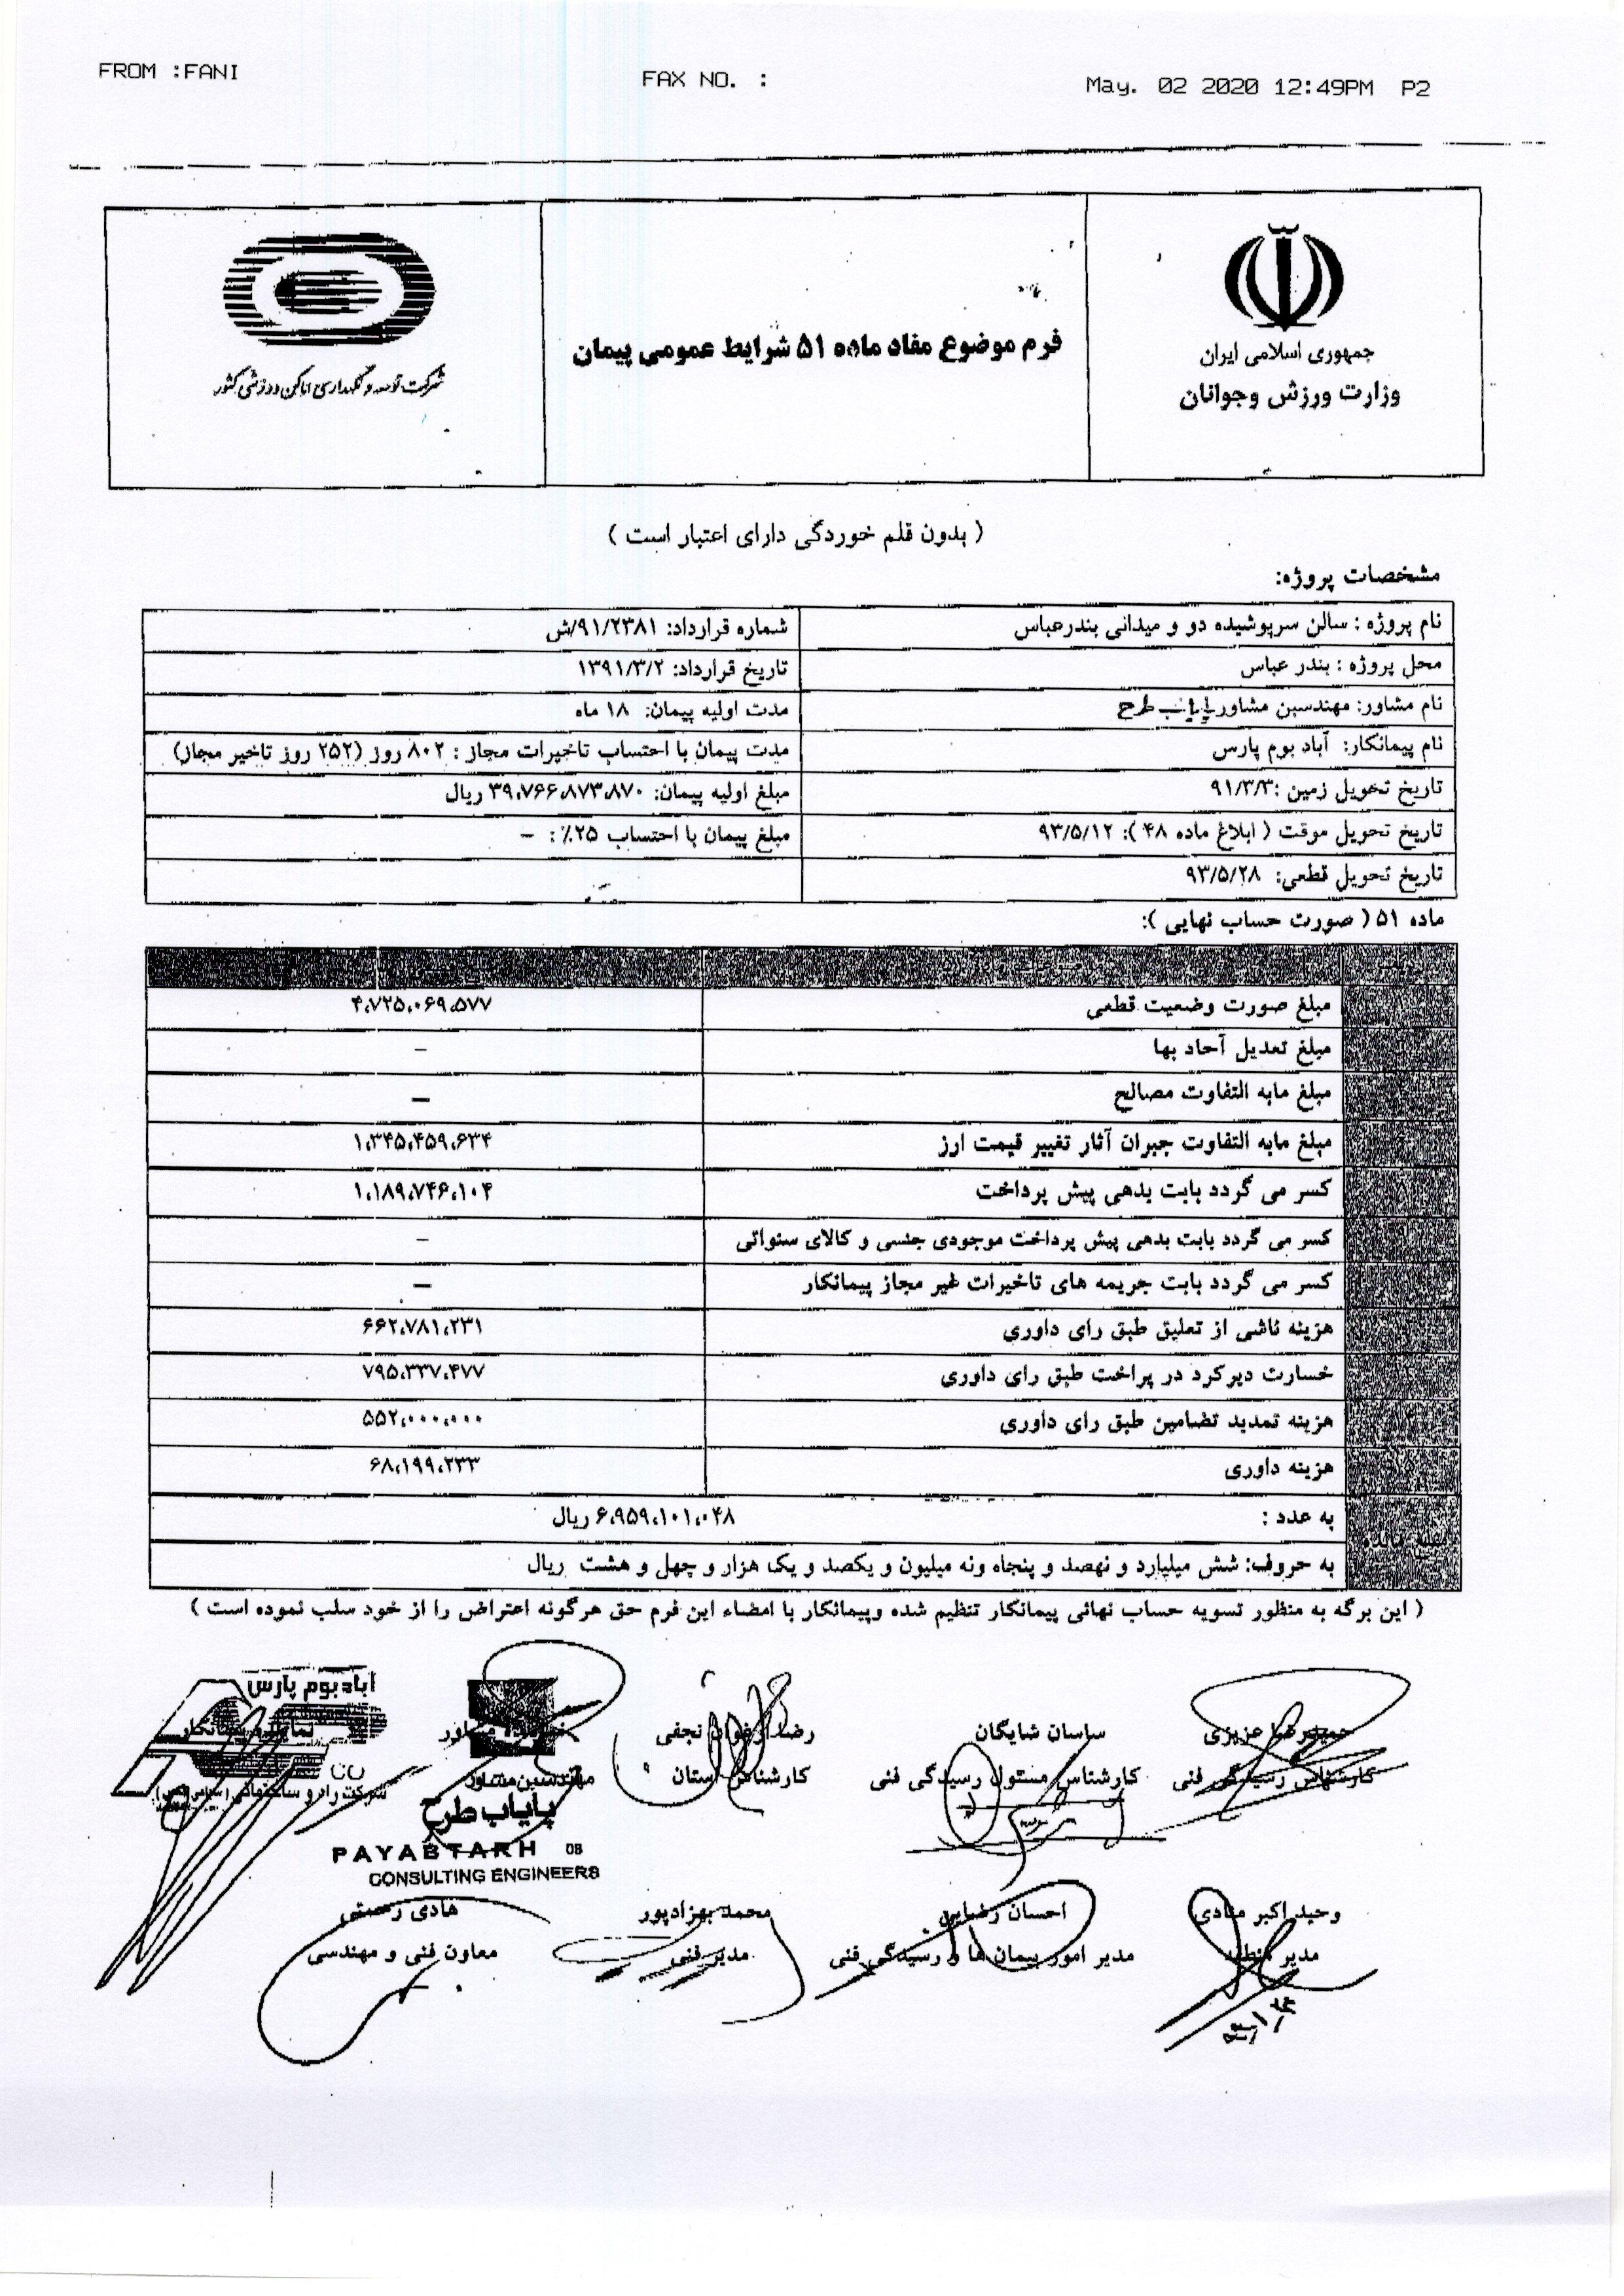 FROM :FANI FAX NO. : May. 02 2020 12:49PM P2
جمهوری اسلامی ایران
وزارت ورزش وجوانان
فرم موضوع مفاد ماده ۵۱ شرایط عمومی پیمان
شرکت توسعه و نگهداری اماکن ورزشی کشور
( بدون قلم خوردگی دارای اعتبار است )
مشخصات پروژه:
نام پروژه : سالن سرپوشیده دو و میدانی بندرعباس شماره قرارداد: ۹۱/۲۳۸۱/ش
محل پروژه : بندر عباس تاریخ قرارداد: ۱۳۹۱/۳/۲
نام مشاور: مهندسین مشاور پایاب طرح مدت اولیه پیمان: ۱۸ ماه
نام پیمانکار: آباد بوم پارس مدت پیمان با احتساب تاخیرات مجاز : ۸۰۲ روز (۲۵۲ روز تاخیر مجاز)
تاریخ تحویل زمین :۹۱/۳/۳ مبلغ اولیه پیمان: ۳۹،۷۶۶،۸۷۳،۸۷۰ ریال
تاریخ تحویل موقت ( ابلاغ ماده ۴۸ ): ۹۳/۵/۱۲ مبلغ پیمان با احتساب ۲۵٪ : –
تاریخ تحویل قطعی: ۹۳/۵/۲۸
ماده ۵۱ ( صورت حساب نهایی ):
مبلغ صورت وضعیت قطعی ۴،۷۲۵،۰۶۹،۵۷۷
مبلغ تعدیل آحاد بها –
مبلغ مابه التفاوت مصالح –
مبلغ مابه التفاوت جبران آثار تغییر قیمت ارز ۱،۳۴۵،۴۵۹،۶۳۴
کسر می گردد بابت بدهی پیش پرداخت ۱،۱۸۹،۷۴۶،۱۰۴
کسر می گردد بابت بدهی پیش پرداخت موجودی جنسی و کالای سنواتی –
کسر می گردد بابت جریمه های تاخیرات غیر مجاز پیمانکار –
هزینه ناشی از تعلیق طبق رای داوری ۶۶۲،۷۸۱،۲۳۱
خسارت دیرکرد در پراخت طبق رای داوری ۷۹۵،۳۳۷،۴۷۷
هزینه تمدید تضامین طبق رای داوری ۵۵۲،۰۰۰،۰۰۰
هزینه داوری ۶۸،۱۹۹،۲۳۳
به عدد : ۶،۹۵۹،۱۰۱،۰۴۸ ریال
به حروف: شش میلیارد و نهصد و پنجاه ونه میلیون و یکصد و یک هزار و چهل و هشت ریال
( این برگه به منظور تسویه حساب نهائی پیمانکار تنظیم شده وپیمانکار با امضاء این فرم حق هرگونه اعتراض را از خود سلب نموده است )
حمیدرضا عزیزی ساسان شایگان رضا نجفی آبادبوم پارس
نماینده پیمانکار
کارشناس رسیدگی فنی کارشناس مسئول رسیدگی فنی کارشناس استان مهندسین مشاور
پایاب طرح
PAYABTARH
CONSULTING ENGINEERS
وحید اکبر احسان رضایی محمد بهزادپور هادی رستمی
مدیر منطقه مدیر امور پیمان ها و رسیدگی فنی مدیر فنی معاون فنی و مهندسی